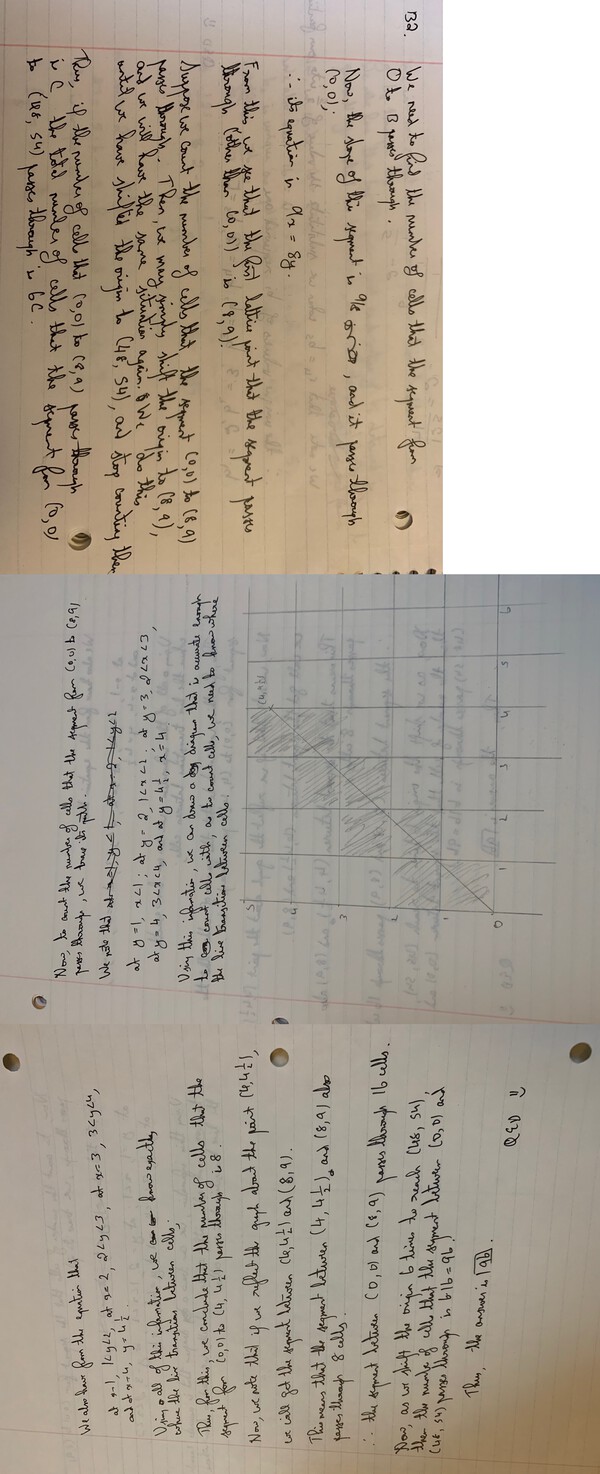 B2. We need to find the number of cells that the segment from
O to B passes through.
Now, the slope of this segment is 9/8, and it passes through
(0,0).
∴ its equation is 9x = 8y.
From this, we see that the first lattice point that the segment passes
through (other than (0,0)) is (8,9).
Suppose we count the number of cells that the segment (0,0) to (8,9)
passes through. Then, we may simply shift the origin to (8,9),
and we will have the same situation again. We do this
until we have shifted the origin to (48,54), and stop counting then
Thus, if the number of cells that (0,0) to (8,9) passes through
is C, the total number of cells that the segment from (0,0)
to (48,54) passes through is 6C.
Now, to count the number of cells that the segment from (0,0) to (8,9)
passes through, we trace its path.
We note that
at y=1, x<1; at y=2, 1<x<2; at y=3, 2<x<3,
at y=4, 3<x<4, and at y=4½, x=4.
Using this information, we can draw a diagram that is accurate enough
to count cells with, as to count cells, we need to know where
the line transitions between cells.
5
4
3
2
1
0
1
2
3
4
5
6
(4,4½)
We also have from the equation that
at x=1, 1<y<2, at x=2, 2<y<3, at x=3, 3<y<4,
and at x=4, y=4½.
Using all of this information, we know exactly
where the line transitions between cells,
Thus, for this, we conclude that the number of cells that the
segment from (0,0) to (4,4½) passes through is 8.
Now, we note that if we reflect the graph about the point (4,4½),
we will get the segment between (4,4½) and (8,9).
This means that the segment between (4,4½) and (8,9) also
passes through 8 cells.
∴ the segment between (0,0) and (8,9) passes through 16 cells.
Now, as we shift the origin 6 times to reach (48,54),
then the number of cells that the segment between (0,0) and
(48,54) passes through is 6·16=96.
Thus, the answer is 96.
QED